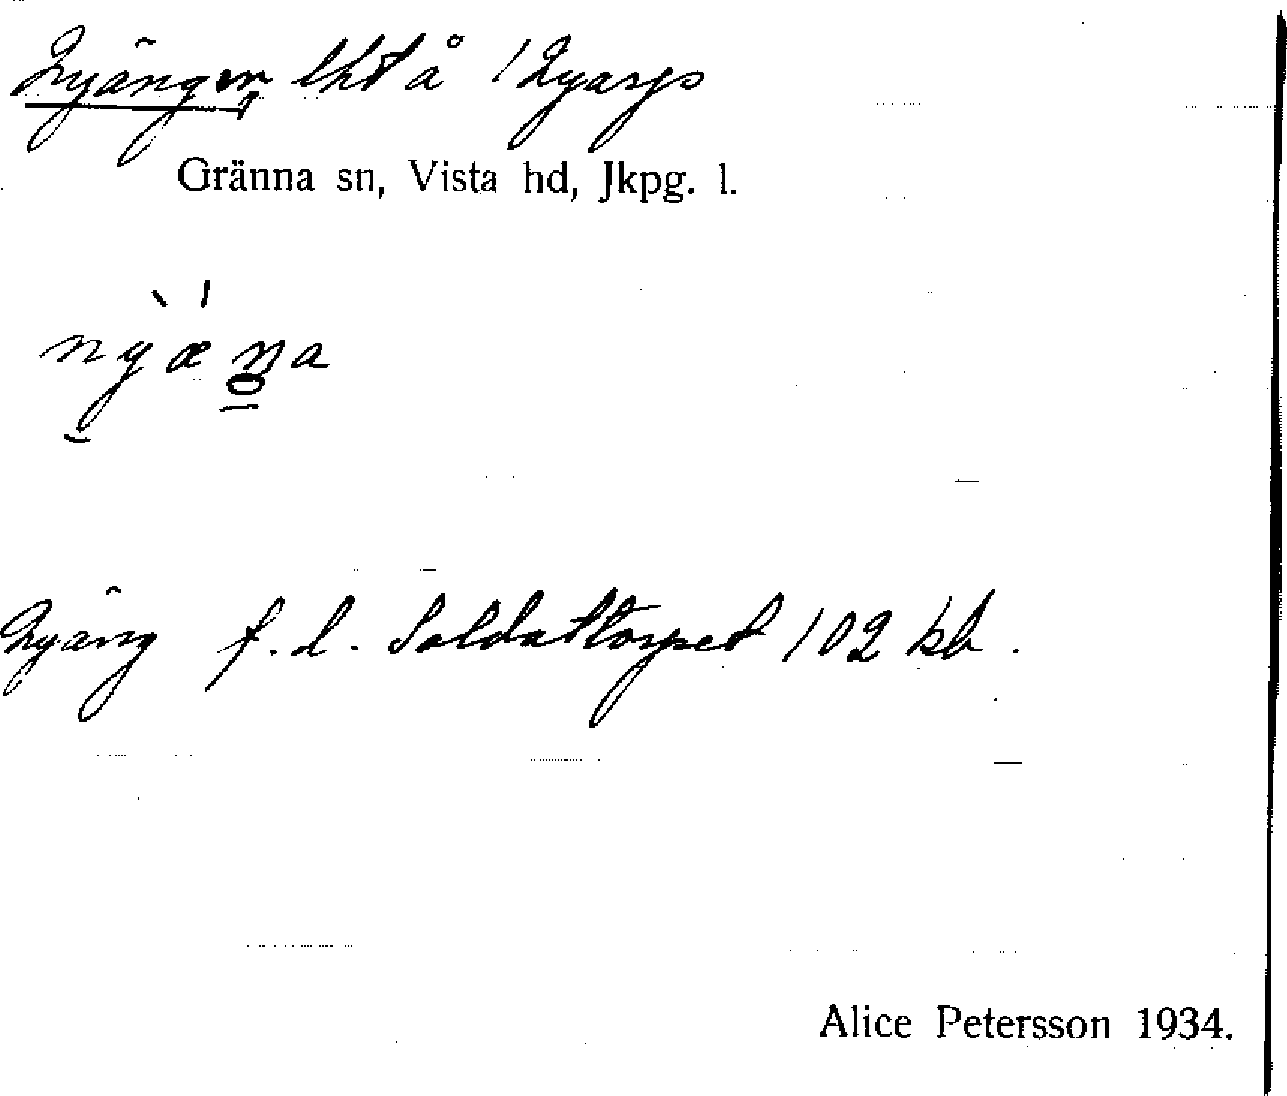 Nyängen lht å 1 Nyarp
Gränna sn, Vista hd, Jkpg. l.
nyæŋa
Nyäng f.d. Soldattorpet 102 kb.
Alice Petersson 1934.